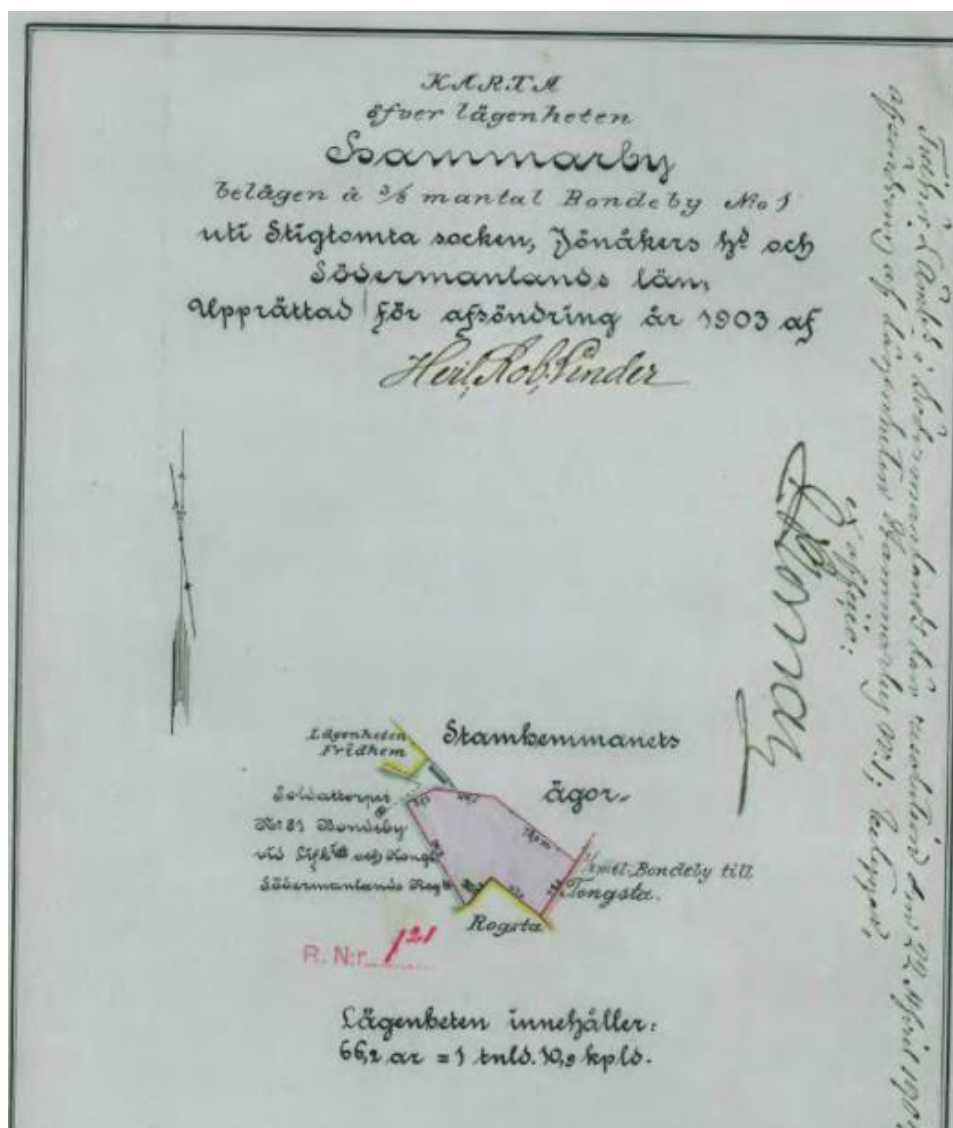 KARTA
öfver lägenheten
Hammarby
belägen å 3/8 mantal Bondeby No 1
uti Stigtomta socken, Jönåkers hd och
Södermanlands län,
Upprättad för afsöndring år 1903 af
Herl, Rob, Linder
Lägenheten
Fridhem
Stamhemmanets
ägor.
Soldattorpet
No 81 Bondeby
vid och Kongl
Södermanlands Reg
mtl. Bondeby till
Tongsta.
Rogsta
R. N:r 121
Lägenheten innehåller:
66,2 ar = 1 tnld. 10,9 kpld.
Södermanlands län resolution den 22 April 190
afsöndring af lägenheten Hammarby No 1; belyser,